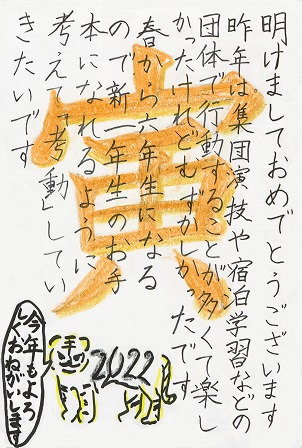 明けましておめでとうございます
昨年は集団演技や宿泊学習などの
団体で行動することが多くて楽し
かったけれどむずかしかったです
春から六年生になる
ので新一年生のお手
本になれるように
考えて「考動」してい
きたいです
寅
今年もよろ
しくおねがいします
2022